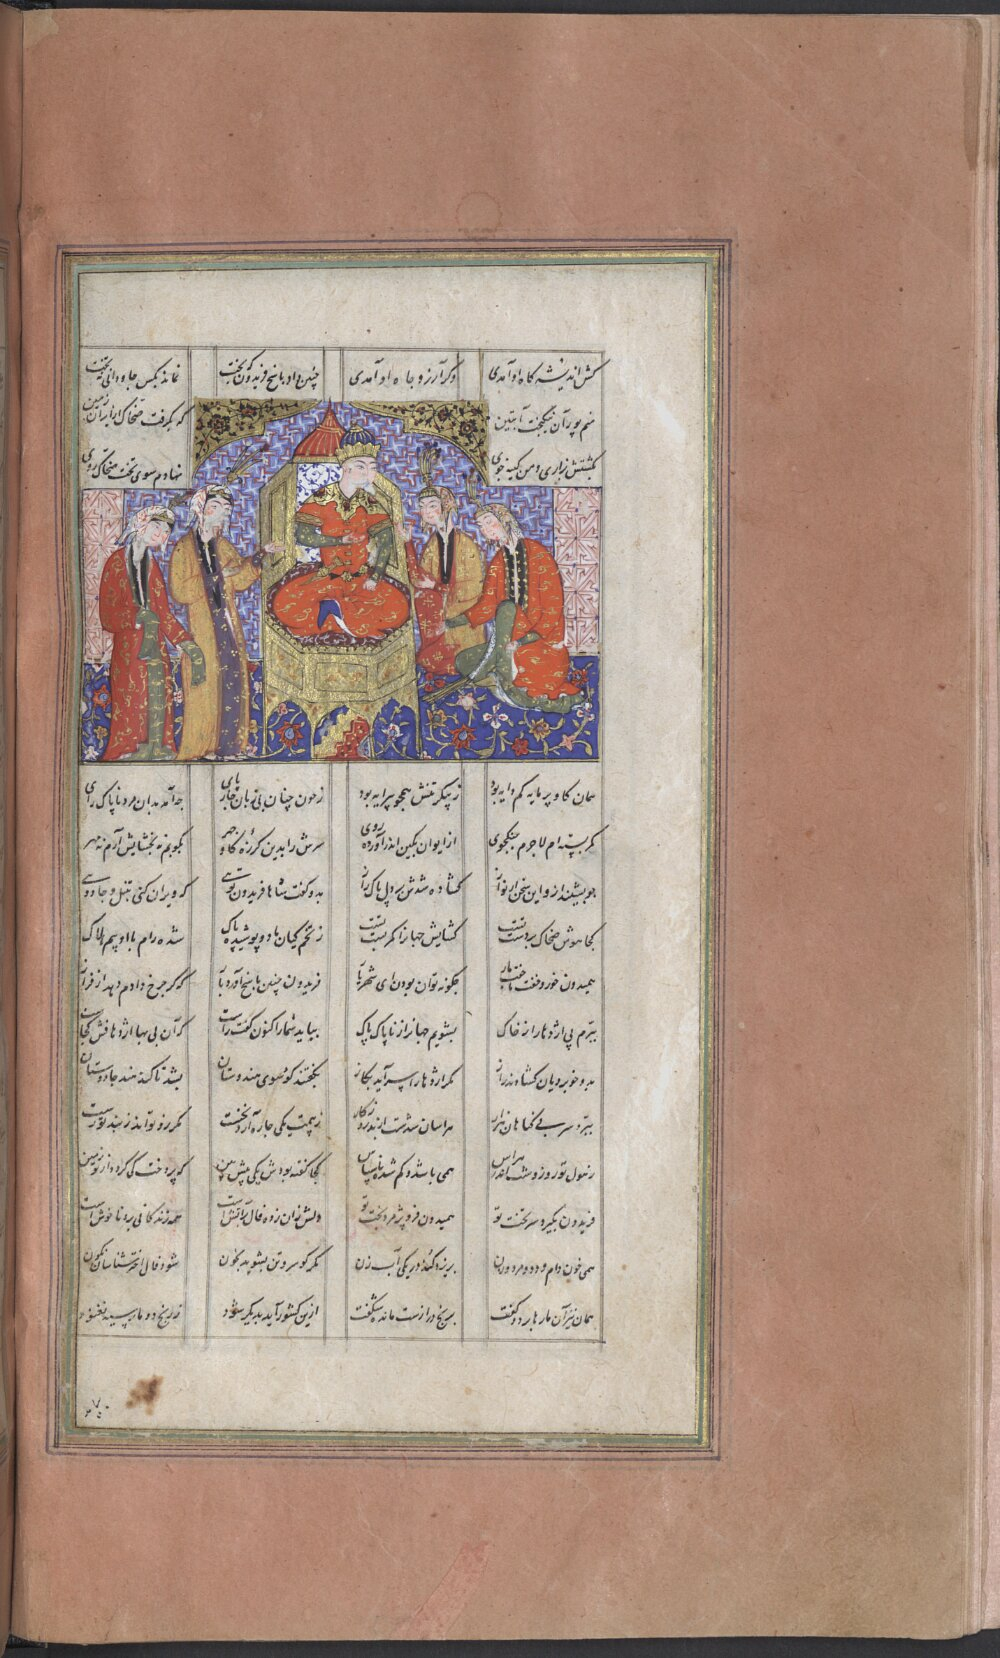 کش اندیشه گاه او آمدی وگر آرزو جاه او آمدی چنین داد پاسخ فریدون که بخت نماند بکس جاودانی نه تخت
منم پور آن نیکبخت آبتین که بگرفت ضحاک از ایران زمین
بکشتش بزاری و من کینه جوی نهادم سوی تخت ضحاک روی
همان گاو پرمایه کم دایه بود ز پیکر تنش همچو پیرایه بود ز خون چنان بی زبان چارپای چه آمد بدان مرد ناپاک رای
کمر بسته‌ام لاجرم جنگجوی از ایوان بکین اندر آورده روی سرش را بدین گرزه گاو چهر بکوبم نه بخشایش آرم نه مهر
چو بشنید ازو این سخن ارنواز گشاده شدش بر دل پاک راز بدو گفت شاها فریدون توئی که ویران کنی تنبل و جادوئی
کجا هوش ضحاک بر دست تست گشایش جهان از کمر بست تست ز تخم کیان ما دو پوشیده پاک شده رام با او ببیم هلاک
همیدون خور و خفت با جفت مار چگونه توان بودن ای شهریار فریدون چنین پاسخ آورد باز که گر چرخ دادم دهد از فراز
ببرم پی اژدها را ز خاک بشویم جهان را ز ناپاک پاک بباید شما را کنون گفت راست که آن بی بها اژدهافش کجاست
بدو خوبرویان گشادند راز مگر اژدها را سر آید بگاز بگفتند کو سوی هندوستان بشد تا کند هند جادوستان
ببرد سر بی گناهان هزار هراسان شدست از بد روزگار
همی باشد و کم شده ناسپاس کجا گفته بودش یکی پیش بین که پردخت کی گردد از تو زمین
فریدون بگیرد سر تخت تو همیدون فرو پژمرد بخت تو دلش زان زده فال پر آتش است همه زندگانی برو ناخوش است
همی خون دام و دد و مرد و زن بریزد کند در یکی آبزن مگر کو سر و تن بشوید بخون شود فال اخترشناسان نگون
همان نیز آن مارها بر دو کفت برنج درازست مانده شگفت ازین کشور آید بدیگر شود ز رنج دو مار سیه نغنود